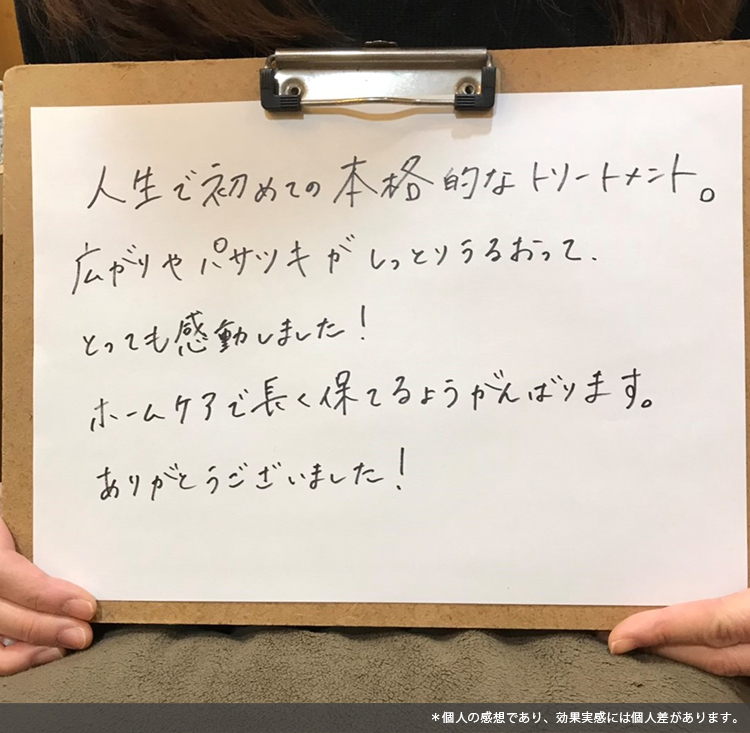 人生で初めての本格的なトリートメント。
広がりやパサツキがしっとりうるおって、
とっても感動しました!
ホームケアで長く保てるようがんばります。
ありがとうございました!
＊個人の感想であり、効果実感には個人差があります。